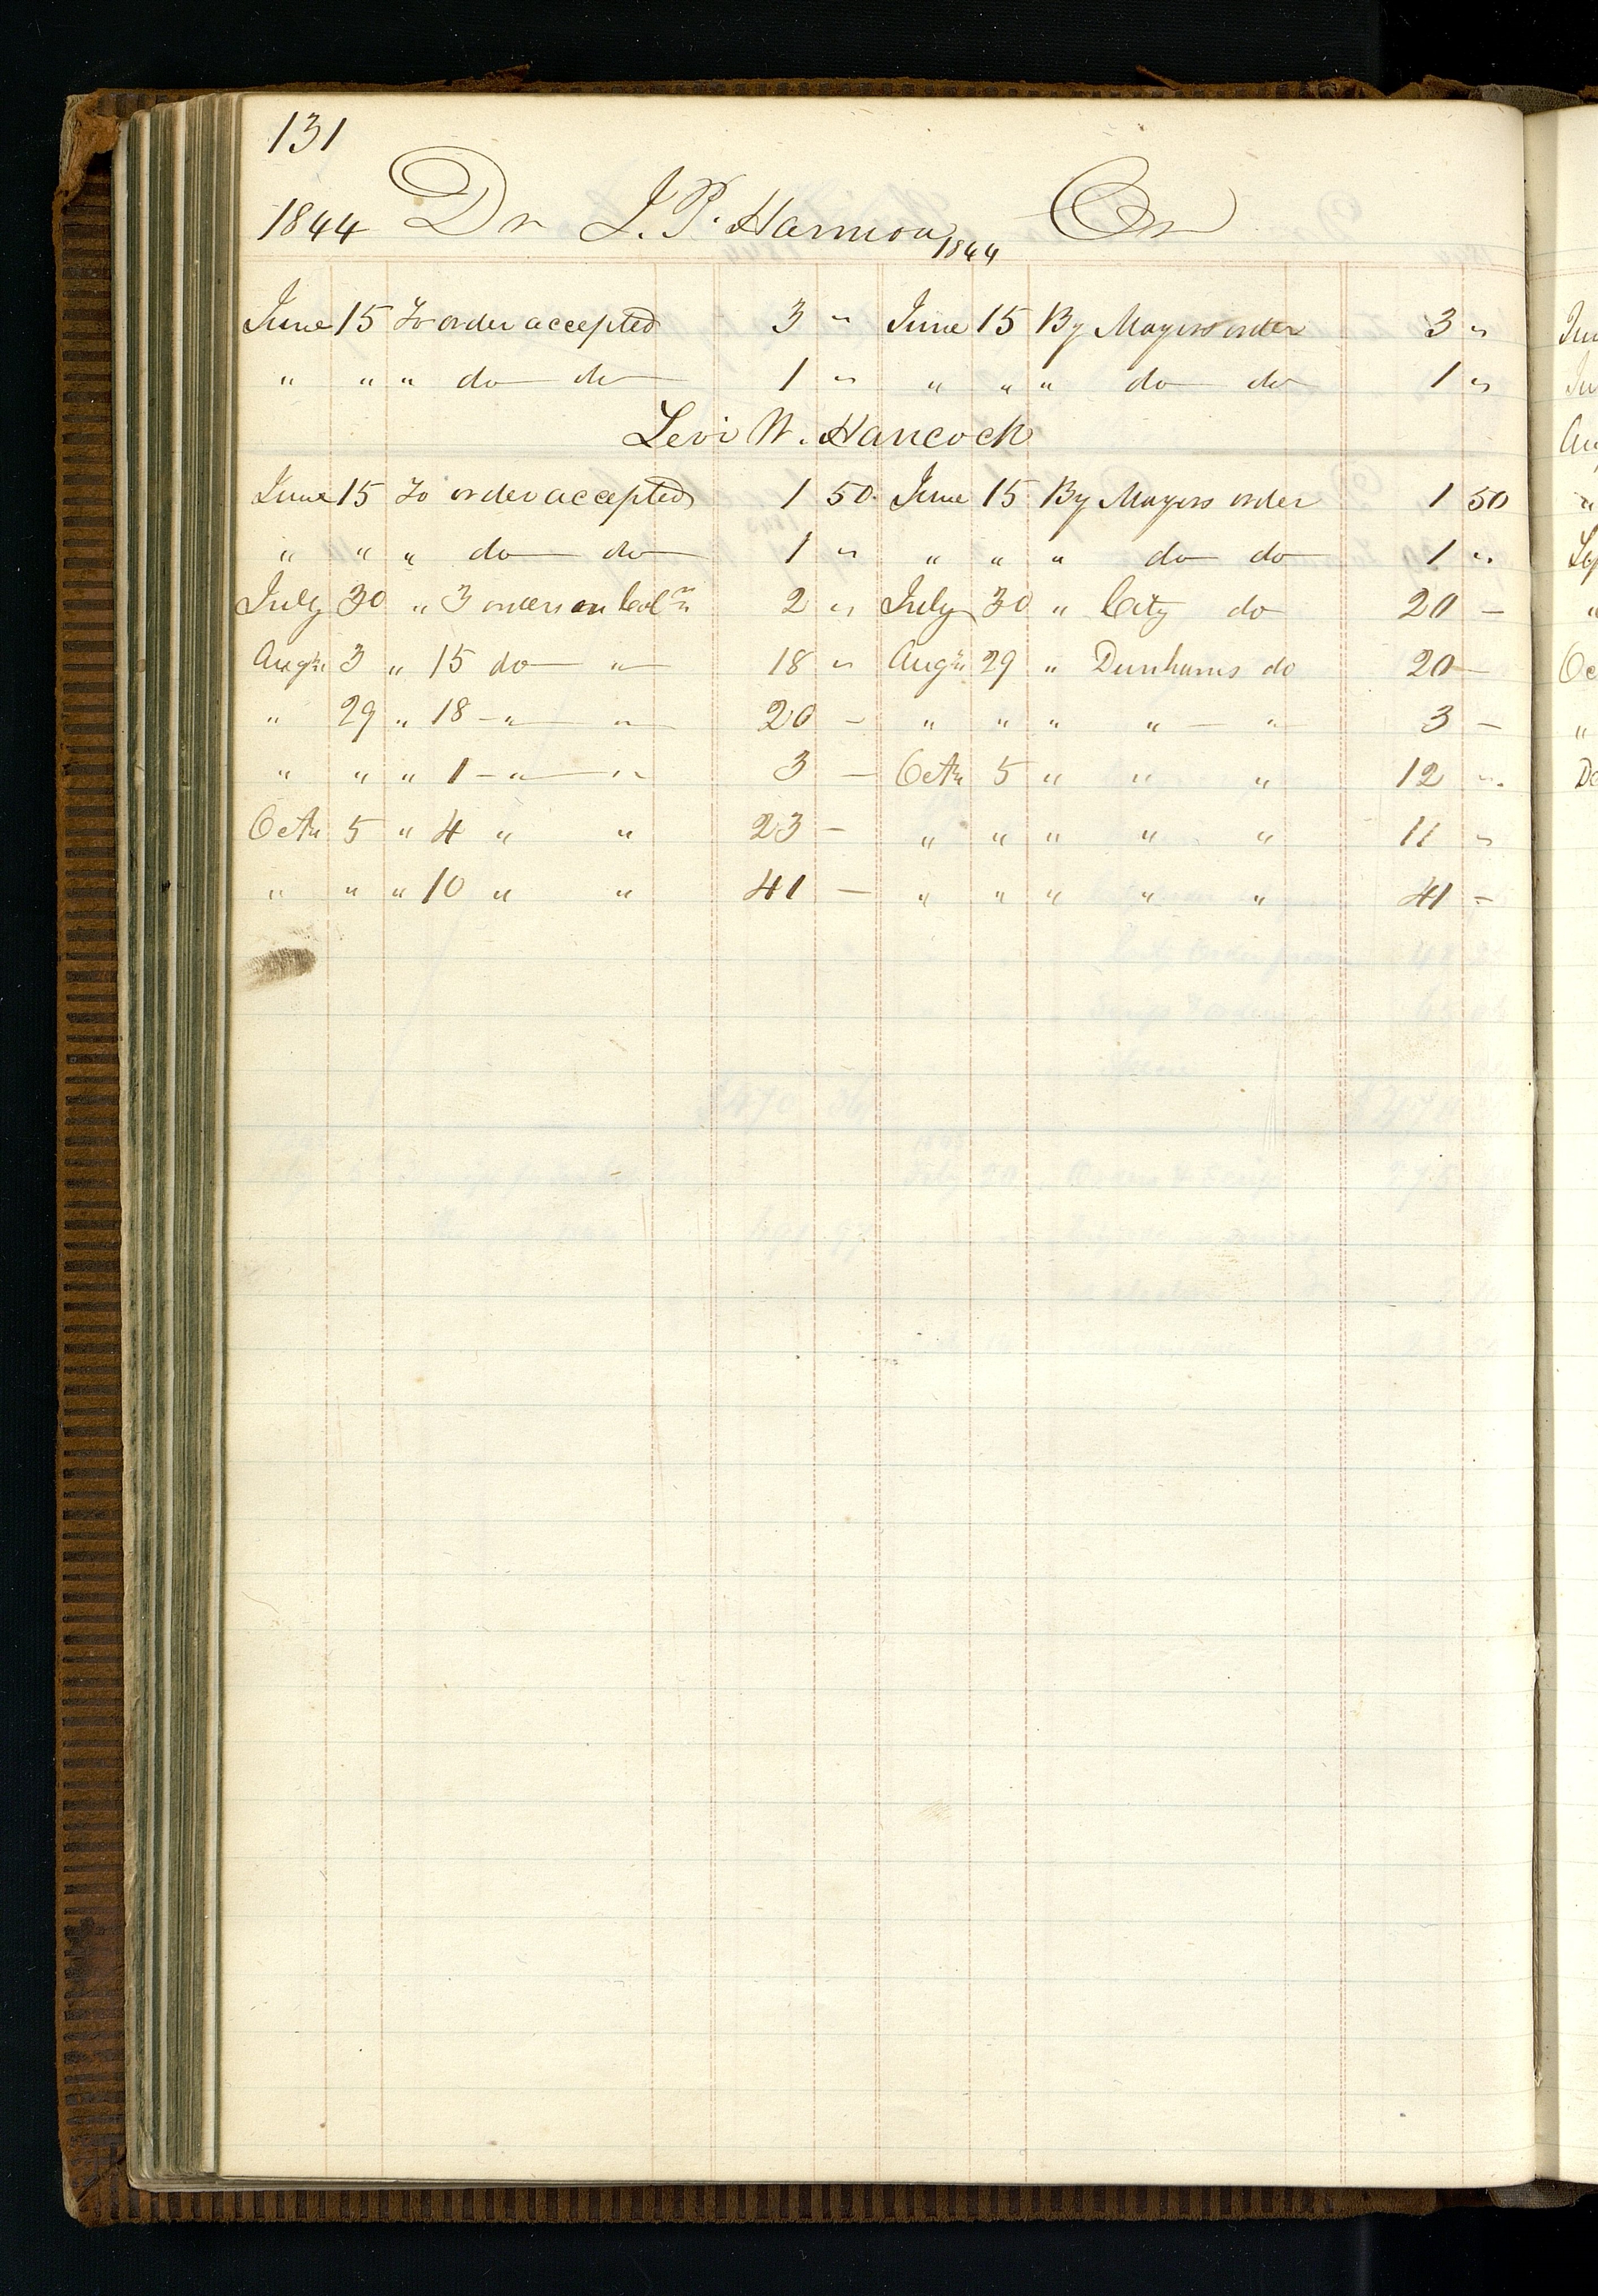 131
1844 Dr J. P. Harmon 1844 Cr
June 15 To order accepted 3 " June 15 By Mayors order 3 "
" " " do do 1 " " " " do do 1 "
Levi W. Hancock
June 15 To order accepted 1 50 June 15 By Mayors order 1 50
" " " do do 1 " " " " do do 1 "
July 30 " 3 orders on Coln 2 " July 30 " City do 20 –
Augt 3 " 15 do " 18 " Augt 29 " Dunhams do 20 –
" 29 " 18 – " " 20 – " " " " " 3 –
" " " 1 – " " 3 – Octr 5 " " " 12 "
Octr 5 " 4 " " 23 – " " " " " 11 "
" " " 10 " " 41 – " " " " " 41 –